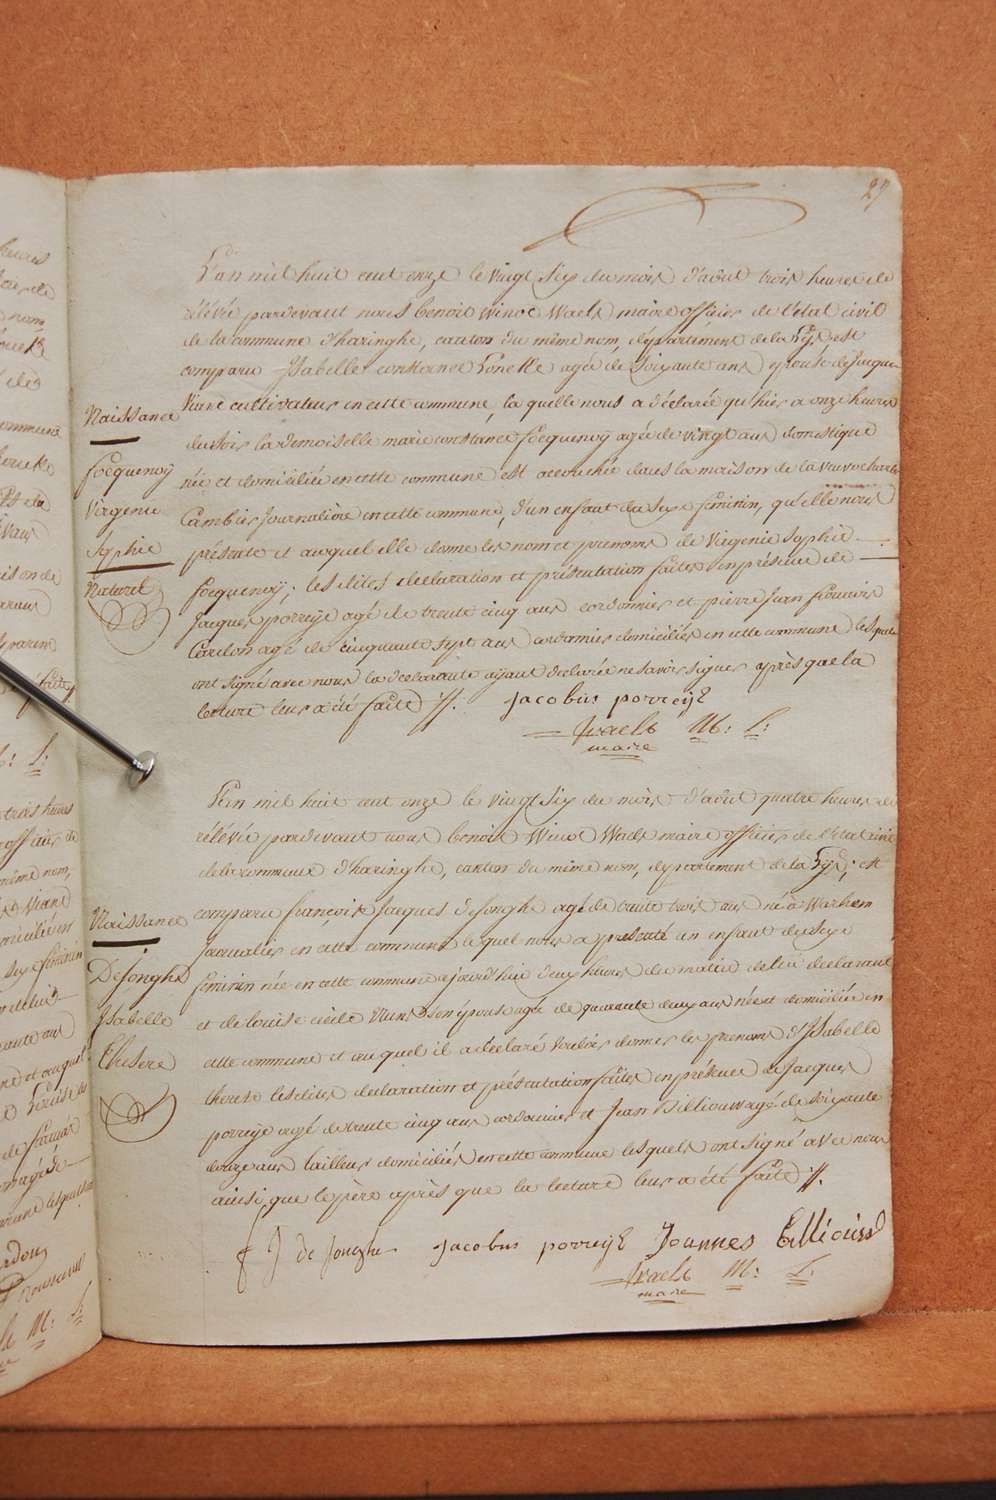 27
L'an mil huit cent onze le vingt six du mois d'aout trois heures de
rélévée pardevant nous benoit Winoc Waels maire officier de l'état civil
de la commune d'haringhe, canton du même nom, département de la Lys est
comparu Isabelle constance agée de soixante ans epouse de Jacques
Viane cultivateur en cette commune, la quelle nous a déclarée qu'hier a onze heures
du soir la demoiselle marie constance focquenoÿ agée de vingt ans domestique
née et domiciliée en cette commune est accouchée dans la maison de la veuve charles
Cambier Journalière en cette commune, d'un enfant du sexe féminin, qu'elle nous
présente et auquel elle donne les nom et prenoms de Virgenie sophie
focquenoÿ; les dites declaration et présentation faites en présence de
Jacques porreÿe agé de trente cinq ans cordonnier et pierre Jean françois
Cardon agé de cinquante sept ans cordonnier domiciliés en cette commune lesquels
ont signé avec nous la declarante aÿant declarée ne savoir signer après que la
lecture leur a été faite //.
Jacobus porreÿE
Waels M: L:
maire
Naissance
focquenoÿ
Virgenie
Sophie
Naturel
L'an mil huit cent onze le vingt six du mois d'aout quatre heures de
rélévée pardevant nous benoit Winoc Waels maire officier de l'état civil
de la commune d'haringhe, canton du même nom, département de la Lys; est
comparu françois Jacques deJonghe agé de trente trois ans né à Warhem
Journalier en cette commune lequel nous a presenté un enfant du sexe
féminin née en cette commune ajourd'hui deux heures du matin de lui declarant
et de louise cécile son épouse agée de quarante deux ans née et domiciliée en
cette commune et auquel il a déclaré vouloir donner les prenoms d'Isabelle
therese les dites declaration et présentation faites en présence de Jacques
porreÿe agé de trente cinq ans cordonnier et Jean Billiouw agé de soixante
douze ans tailleur domiciliés en cette commune lesquels ont signé avec nous
ainsi que le père après que la lecture leur a été faite //.
f J de Jonghe Jacobus porreÿE Joannes Billiouw
Waels M: L:
maire
Naissance
DeJonghe
Isabelle
Therese